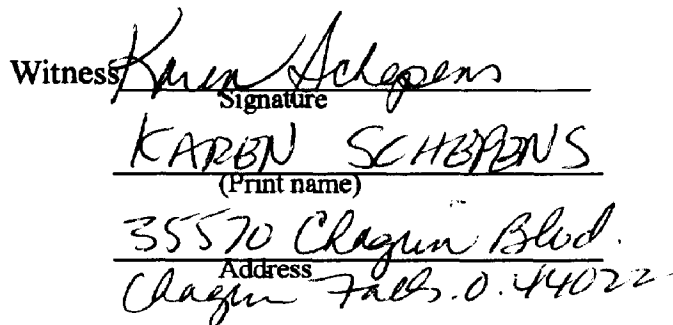 Witness Karen Schepens
Signature
KAREN SCHEPENS
(Print name)
35570 Chagrin Blvd.
Address
Chagrin Falls. O. 44022